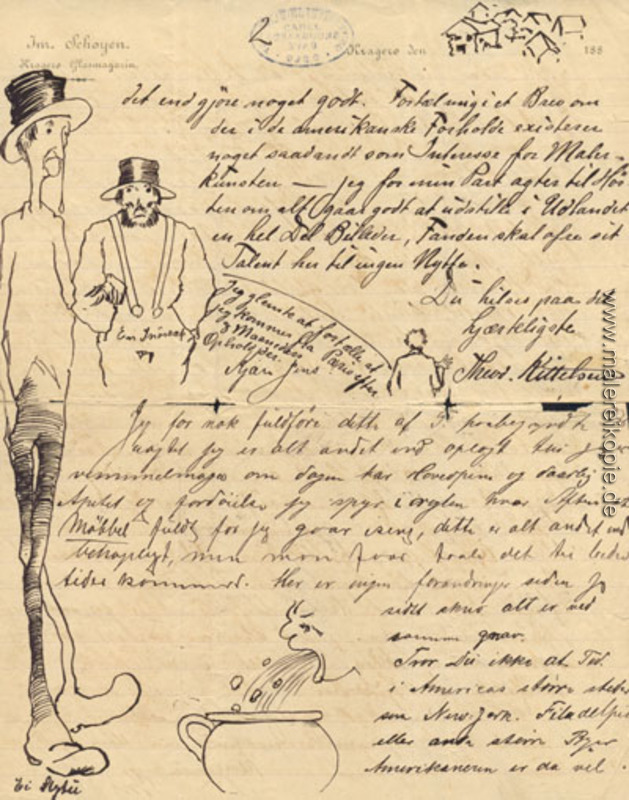 2
Jm. Schoyen.
Kragerö Glasmagazin.
Kragerö den 188
det end gjöre noget godt. Fortæl mig i et Brev om
der i de amerikanske Forholde existerer
noget saadandt som Interesse for Maler-
kunsten — jeg for min Part agter til Hös-
ten om alt gaar godt at udstille i Udlandet
en hel Del Billeder, Fanden skal ofre sit
Talent her til ingen Nytte.
Du hilses paa det
hjærteligste
Theod. Kittelsen
Jeg glemte at fortælle at
jeg kommer fra Paris efter
3 Maaneders
Ophold der.
En
Jeg faar nok fuldföre dette af
jeg er alt andet end oplagt thi
om dagen har Hovedpine og daarlig
Apetit og jeg spyr i hver Aften
Möbbel fuldt för jeg gaar iseng, dette er alt andet end
behageligt, men man faar det til bedre
tider kommer. Her er ingen forandringer siden jeg
sidst skrev alt er ved
samme
Tror Du ikke at Ted.
i Americas större steder
som New-Jork. Filadelfia
eller andre större Byer
Amerikanerne er da vel
www.malereikopie.de